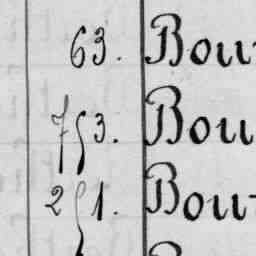 63. Bou
753. Bou
251. Bou